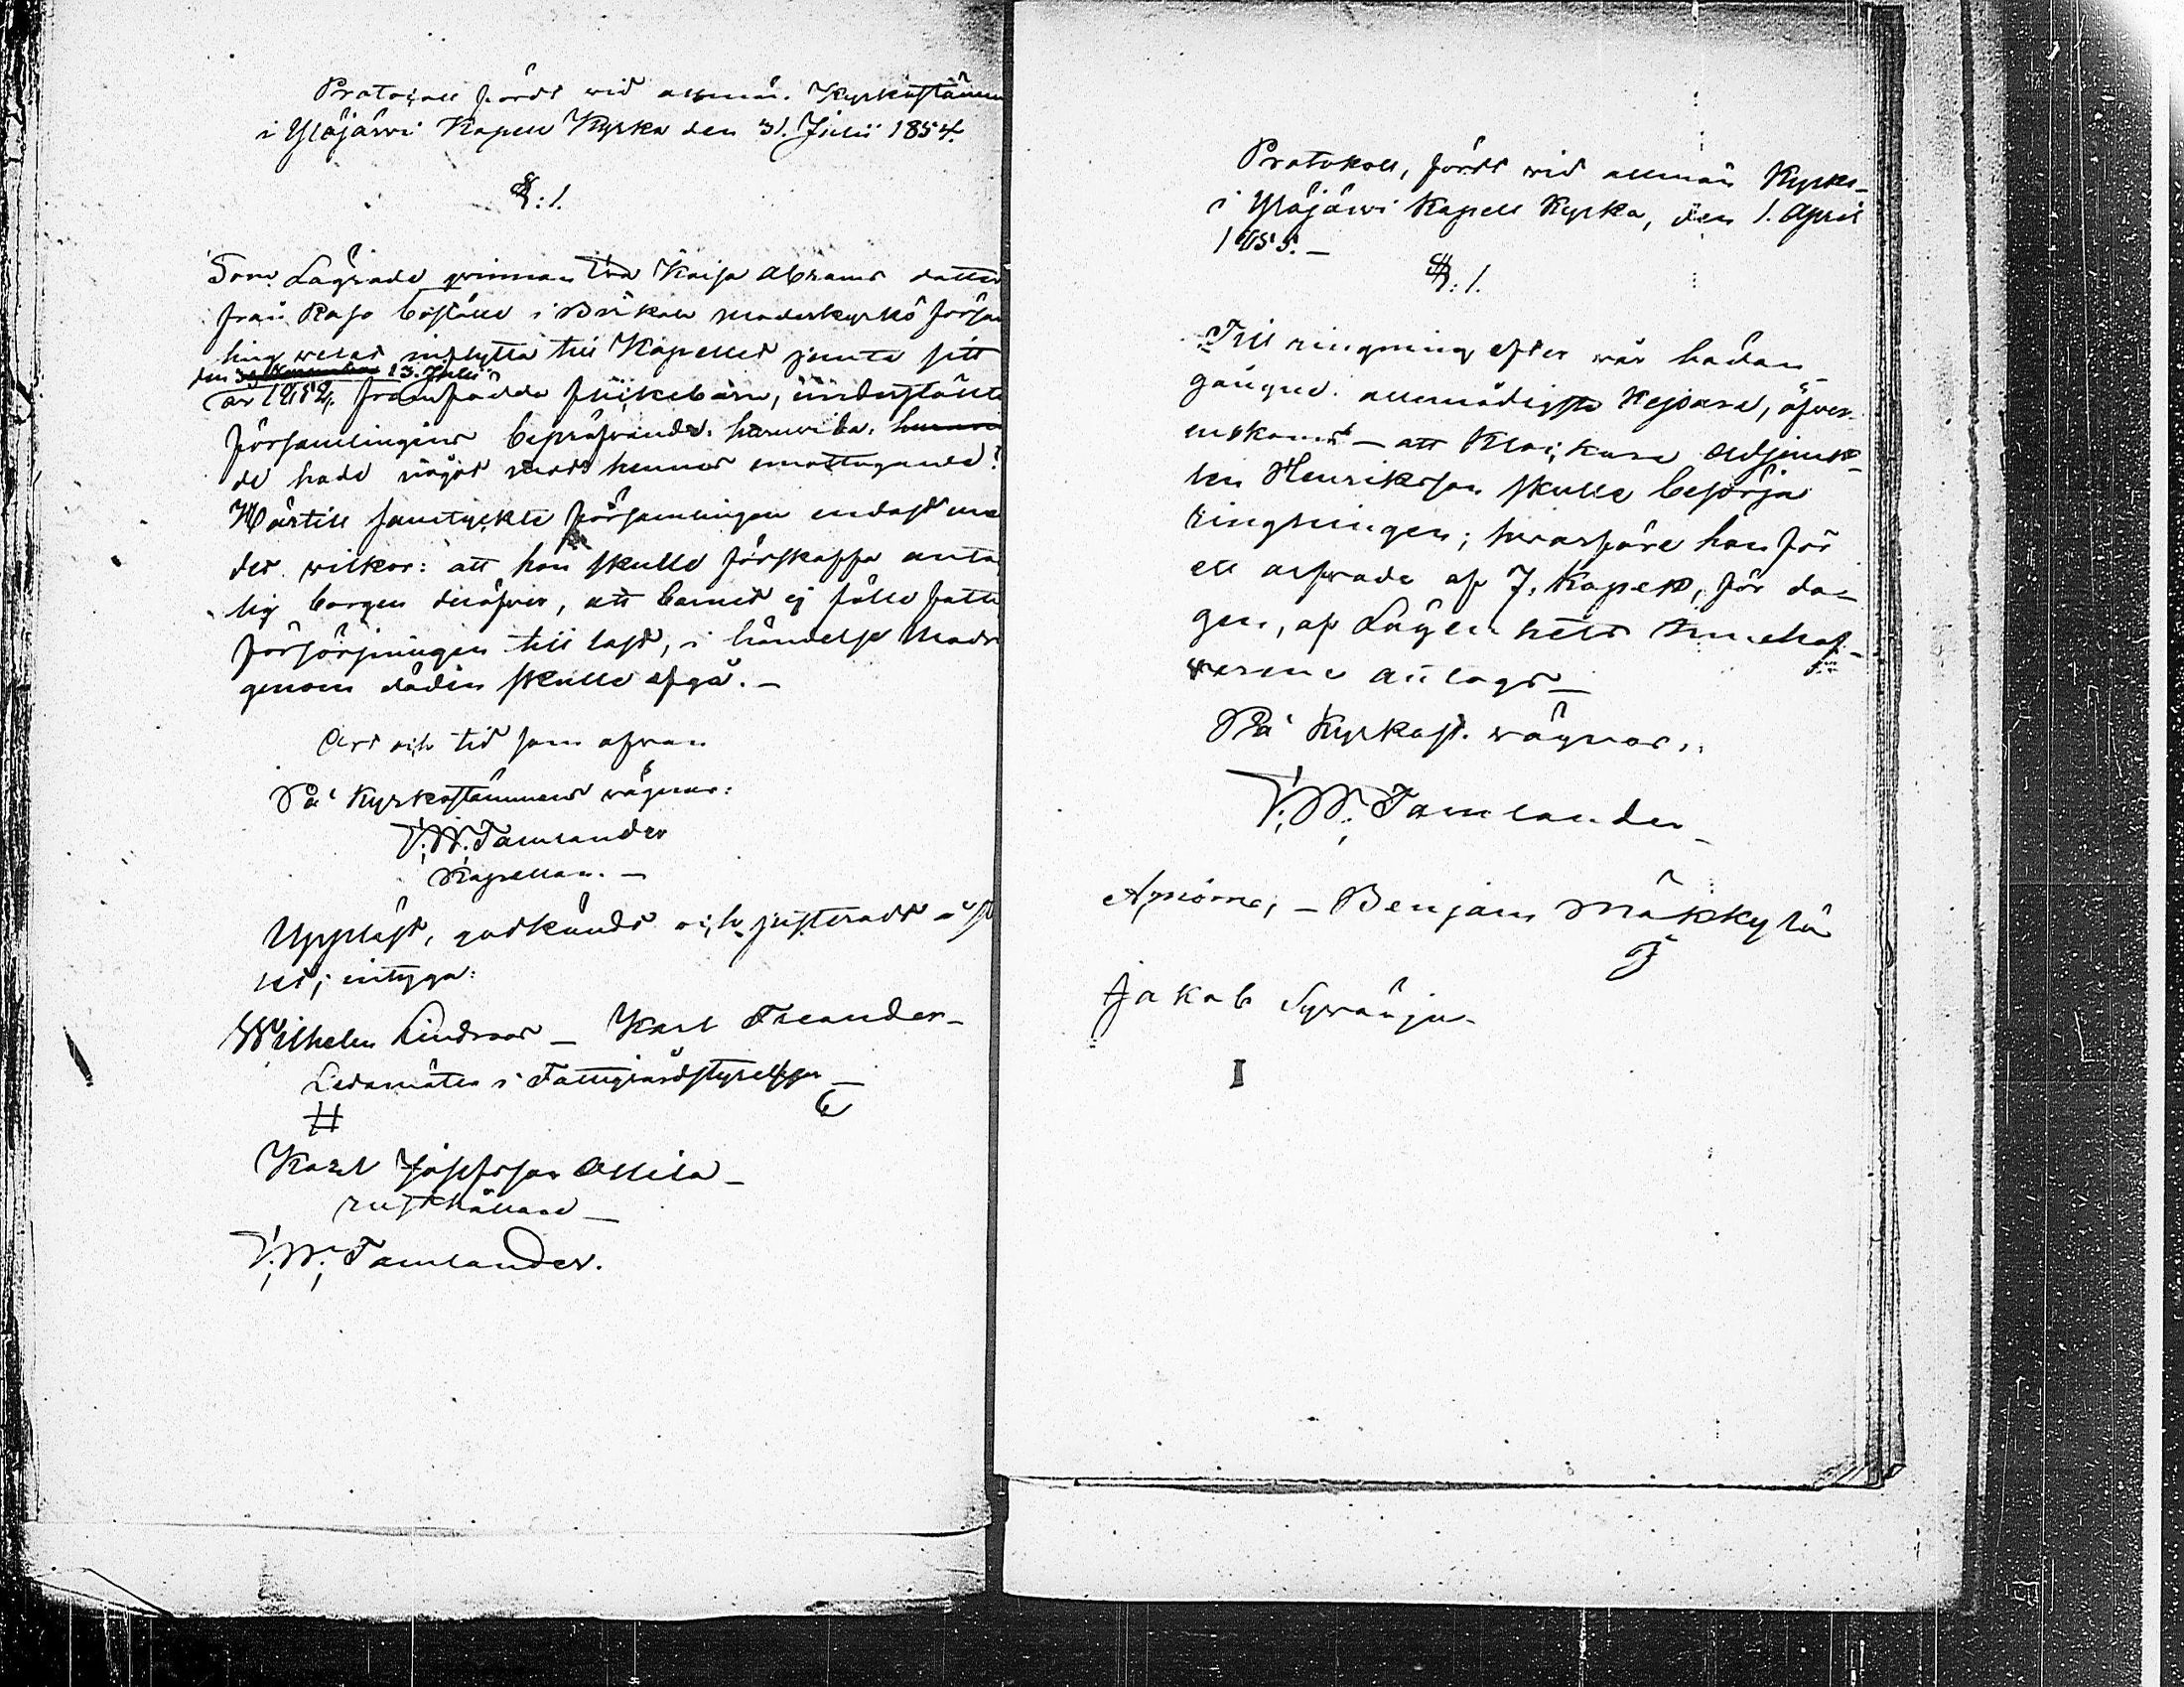 Protocoll fördt wid allmän Kyrkostämm
i Ylöjärwi Kapell Kyrka den 31. Julii 1854.
§:1.
Som Lägrade qvinnan Eva Kaisa Abrams dotter
från Raso boställe i Birkala moderkyrko försam
ling welat inflytta till Kapellet jemte sitt
den 13. Julii
år 1852. framfödda flickebarn, underställts
församlingens bepröfvande, huruvida
de hade något emot hennes emottagande?
Härtill samtyckte församlingen endast me
det wilkor: att hon skulle förskaffa anta
lig borgen deröfver, att barnet ej fölle fatti
försörjningen till last, i händelse Modr
genom döden skulle afgå. _
Ort och tid som ofwan
På Kyrkostämmans wägnar:
V. W. Tamlander
Kapellan. _
Uppläst, godkändt och justeradt
let; intyga:
Wilhelm Lindroos _ Karl Theander _
Ledamöter i Fattigvårdstyrelsen _
Karl Josefsson Ollila _
rusthållare _
V. W. Tamlander.
Protokoll, fördt wid allmän Kyrko-
i Ylöjärwi Kapell Kyrka, den 1. April
1855. _
§:1.
Till ringning efter wår hädan-
gångne allernådigste Kejsare, öfver-
enskoms _ att Klockare Adjunk-
ten Henriksson skulle besörja
ringningen; hvarföre han för
ett arfvode af 7. Kopek, för da-
gen, af Lägenhets Innehaf-
werne anlags _
På Kyrkost. wägnar.
V. W. Tamlander _
_ Benjam Mäkkylä
Jakob
I